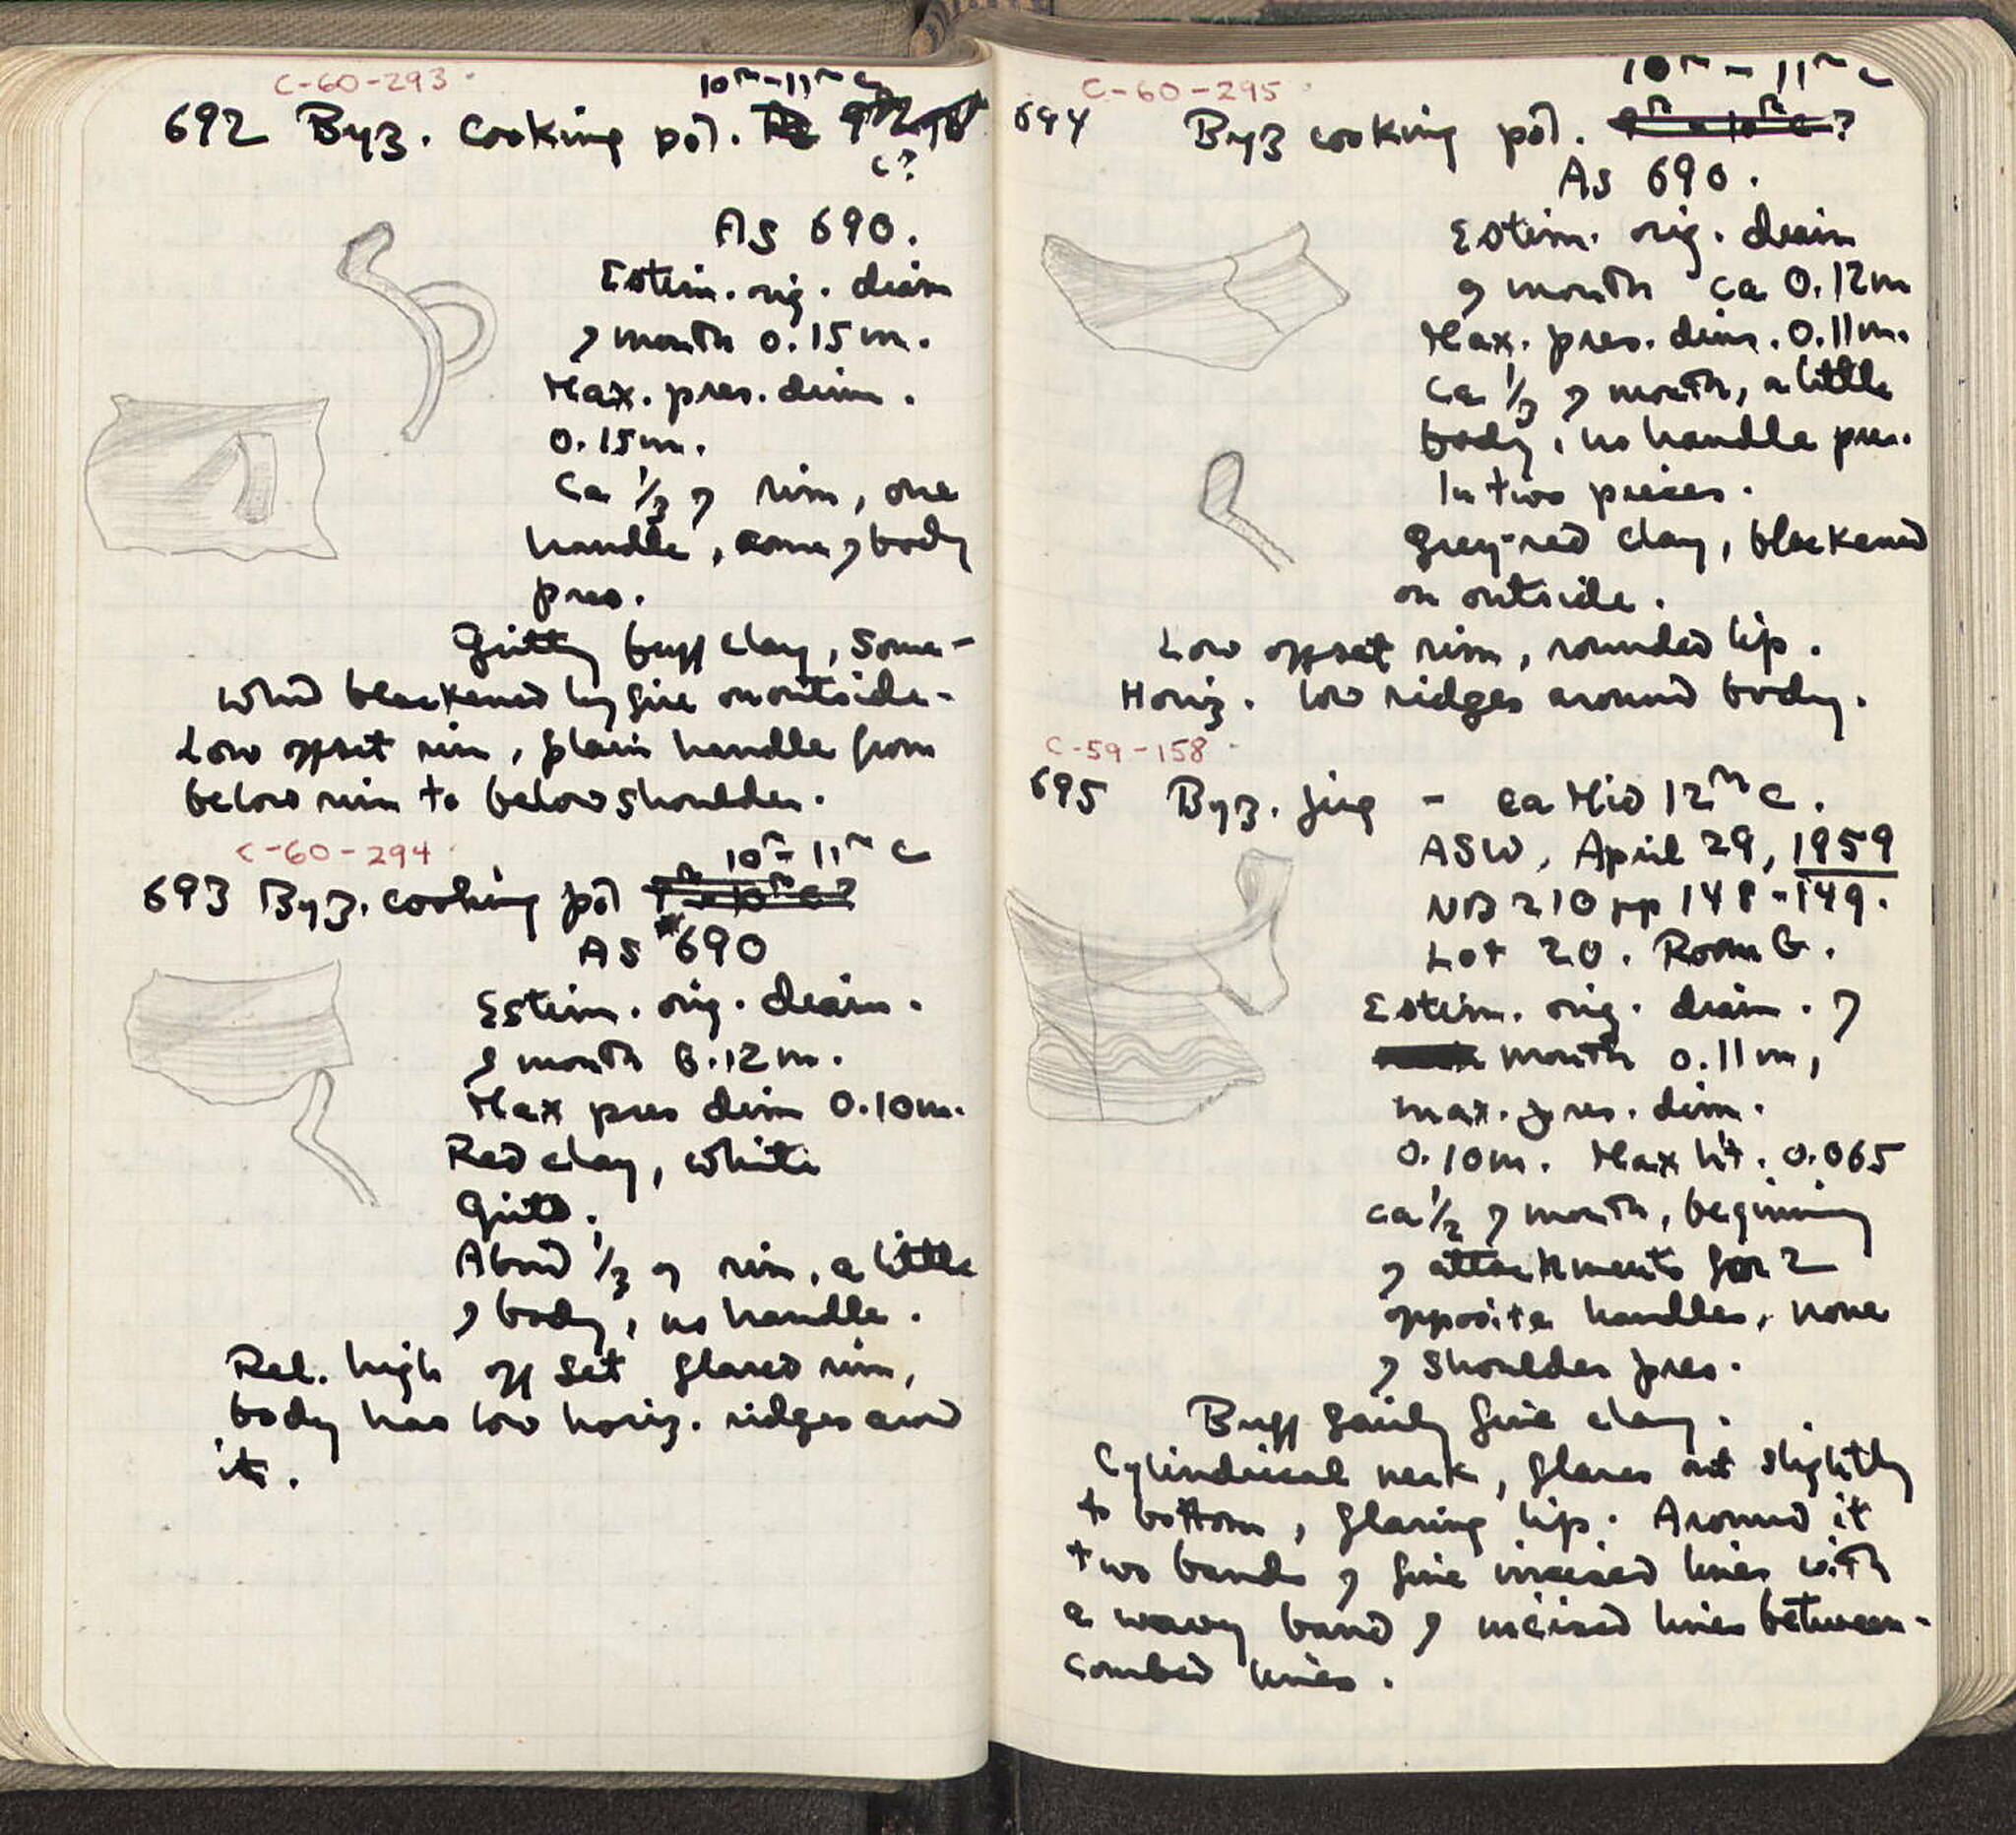 C-60-293
10th-11th C
692 Byz. cooking pot. 9th-10th
c?
As 690.
Estim. orig. diam
of mouth 0.15m.
Max. pres. dim.
0.15m.
Ca 1/3 of rim, one
handle, some of body
pres.
Gritty buff clay, some-
what blackened by fire on outside-
Low offset rim, plain handle from
below rim to below shoulder.
C-60-294
10th-11th C
693 Byz. cooking pot 9th-10th c?
As #690
Estim. orig. diam.
of mouth 0.12m.
Max pres dim 0.10m.
Red clay, white
Grits.
About 1/3 of rim, a little
of body, no handle.
Rel. high off set flared rim,
body has low horiz. ridges arond
it.
C-60-295
10th-11th C
694 Byz cooking pot. 9th-10th c?
As 690.
Estim. orig. diam
of mouth ca 0.12m
Max. pres. dim. 0.11m.
Ca 1/3 of mouth, a little
body, no handle pres.
In two pieces.
Grey-red clay, blackened
on outside.
Low offset rim, rounded lip.
Horiz. low ridges around body.
C-59-158
695 Byz. jug - ca Mid 12th C.
ASW, April 29, 1959
NB 210 pp 148-149.
Lot 20. Room G.
Estim. orig. diam. of
mouth 0.11m,
max. pres. dim.
0.10m. Max ht. 0.065
ca 1/2 of mouth, beginning
of attachments for 2
opposite handles, none
of shoulder pres.
Buff fairly fine clay.
Cylindrical neck, flares out slightly
to bottom, flaring lip. Around it
two bands of fine incised lines with
a wavy band of incised lines between-
combed lines.